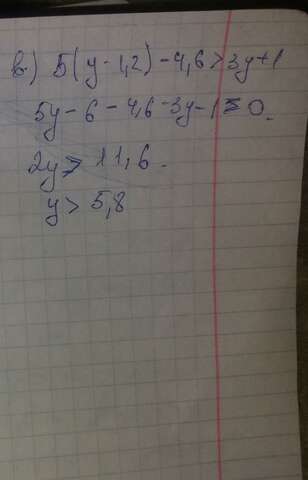 в.) 5(y-1,2)-4,6>3y+1
5y-6-4,6-3y-1>0.
2y>11,6.
y>5,8